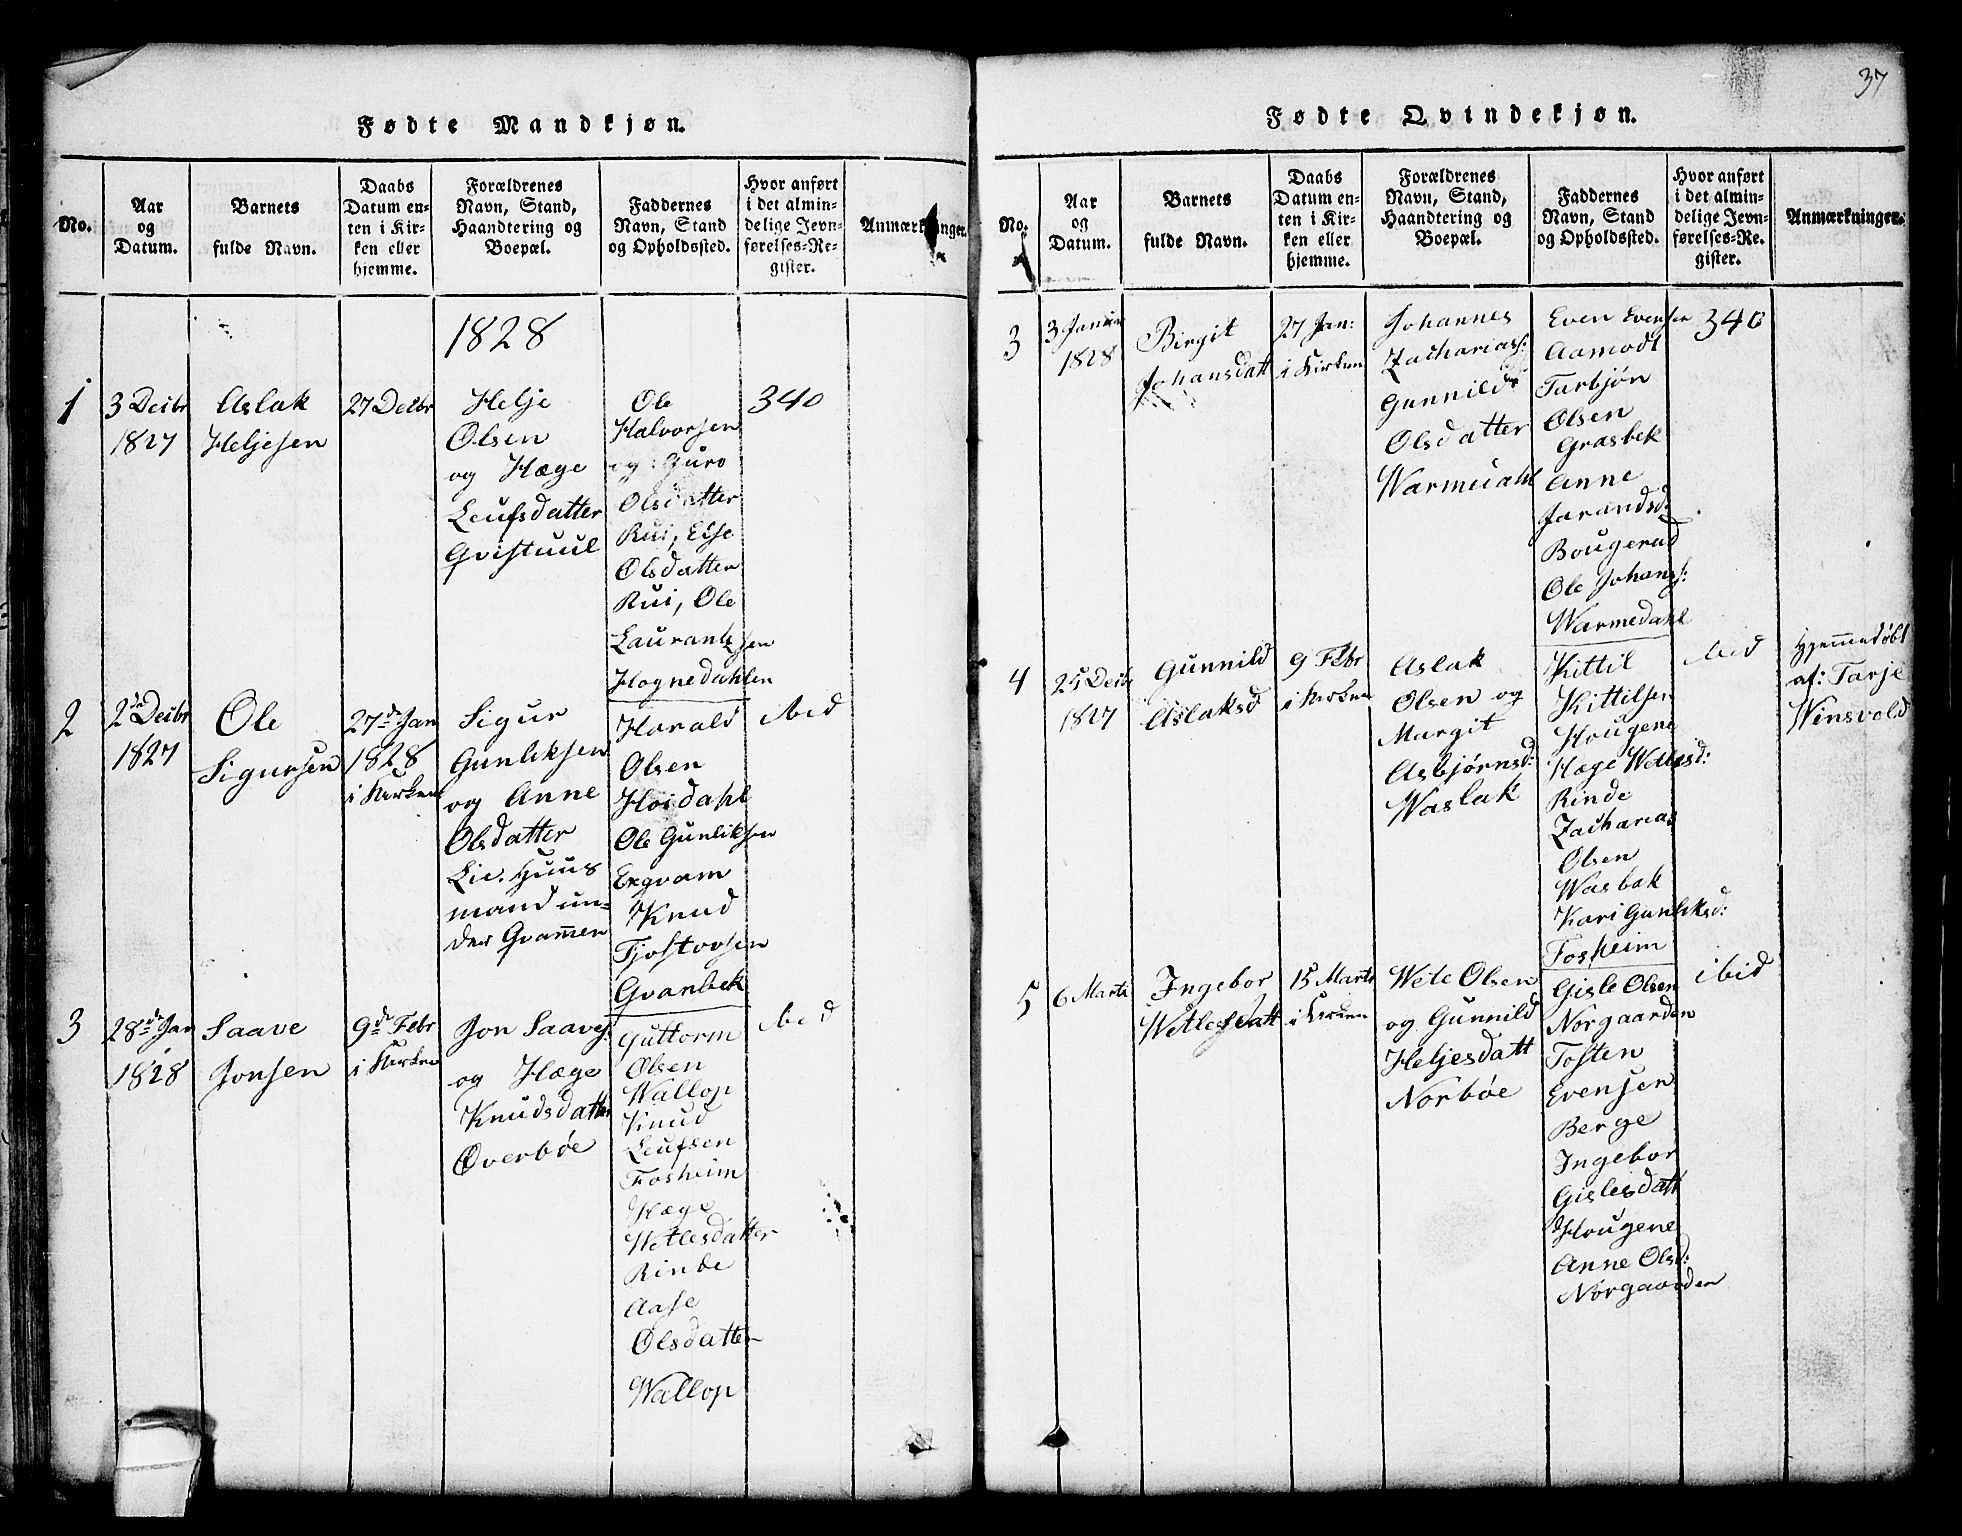 37
Fødte Mandkjøn.
No.
Aar
og
Datum.
Barnets
fulde Navn.
Daabs
Datum en-
ten i Kir-
ken eller
hjemme.
Forældrenes
Navn, Stand,
Haandtering og
Boepæl.
Faddernes
Navn, Stand
og Opholdssted.
Hvor anført
i det almin-
delige Jevn-
førelses-Re-
gister.
Anmærkninger.
1828
1
3 Decbr
1827
Aslak
Heljesen
27 Decbr
Helje
Olsen
og Hæge
Leufsdatter
Qvistuul
Ole
Halvorsen
og Guro
Olsdatter
Rui, Else
Olsdatter
Rui, Ole
Laurantsen
Hognedahlen
340
2
2de Decbr
1827
Ole
Sigursen
27d Jan
1828
i Kirken
Sigur
Gunliksen
og Anne
Olsdatter
Lie. Huus
mand un=
der Qvammen
Harald
Olsen
Høidahl
Ole Gunliksen
Exqvam
Knud
Tjostovsen
Qvanbek
ibid
3
28de Jan
1828
Saave
Jonsen
9d Febr
i Kirken
Jon Saaves:
og Hæge
Knudsdatter
Øverbøe
Guttorm
Olsen
Wallop
Knud
Leufsen
Fosheim
Hæge
Wetlesdatter
Rinde
Aase
Olsdatter
Wallop
ibid
Fødte Qvindekjøn.
No.
Aar
og
Datum.
Barnets
fulde Navn.
Daabs
Datum en-
ten i Kir-
ken eller
hjemme.
Forældrenes
Navn, Stand,
Haandtering og
Boepæl.
Faddernes
Navn, Stand
og Opholdssted.
Hvor anført
i det almin-
delige Jevn-
førelses-Re-
gister.
Anmærkninger.
3
3 Januar
1828
Birgit
Johansdatt
27 Jan:
i Kirken
Johannes
Zacharias:
Gunnild
Olsdatter
Warmedahl
Even Evensen
Aamodt
Tarbjøn
Olsen
Grasbek
Anne
Jarandsd:
Bougerud
Ole Johans:
Warmedahl
340
4
25 Decbr
1827
Gunnild
Aslaksd
9 Febr
i Kirken
Aslak
Olsen og
Margit
Asbjørnsd:
Waslak
Kittil
Kittilsen
Hougene
Hæge Wetlesd:
Rinde
Zacharias
Olsen
Wasbak
Kari Gunliksd:
Fosheim
ibid
Hjemmedøbt
af: Tarje
Winsvold
5
6 Marti
Ingebor
Wetlesdatt
15 Marts
i Kirken
Wetle Olsen
og Gunnild
Heljesdatt
Norbøe
Gisle Olsen
Norgaarden
Tosten
Evensen
Berge
Ingebor
Gislesdatt
Hougene
Anne Olsd:
Norgaarden
ibid